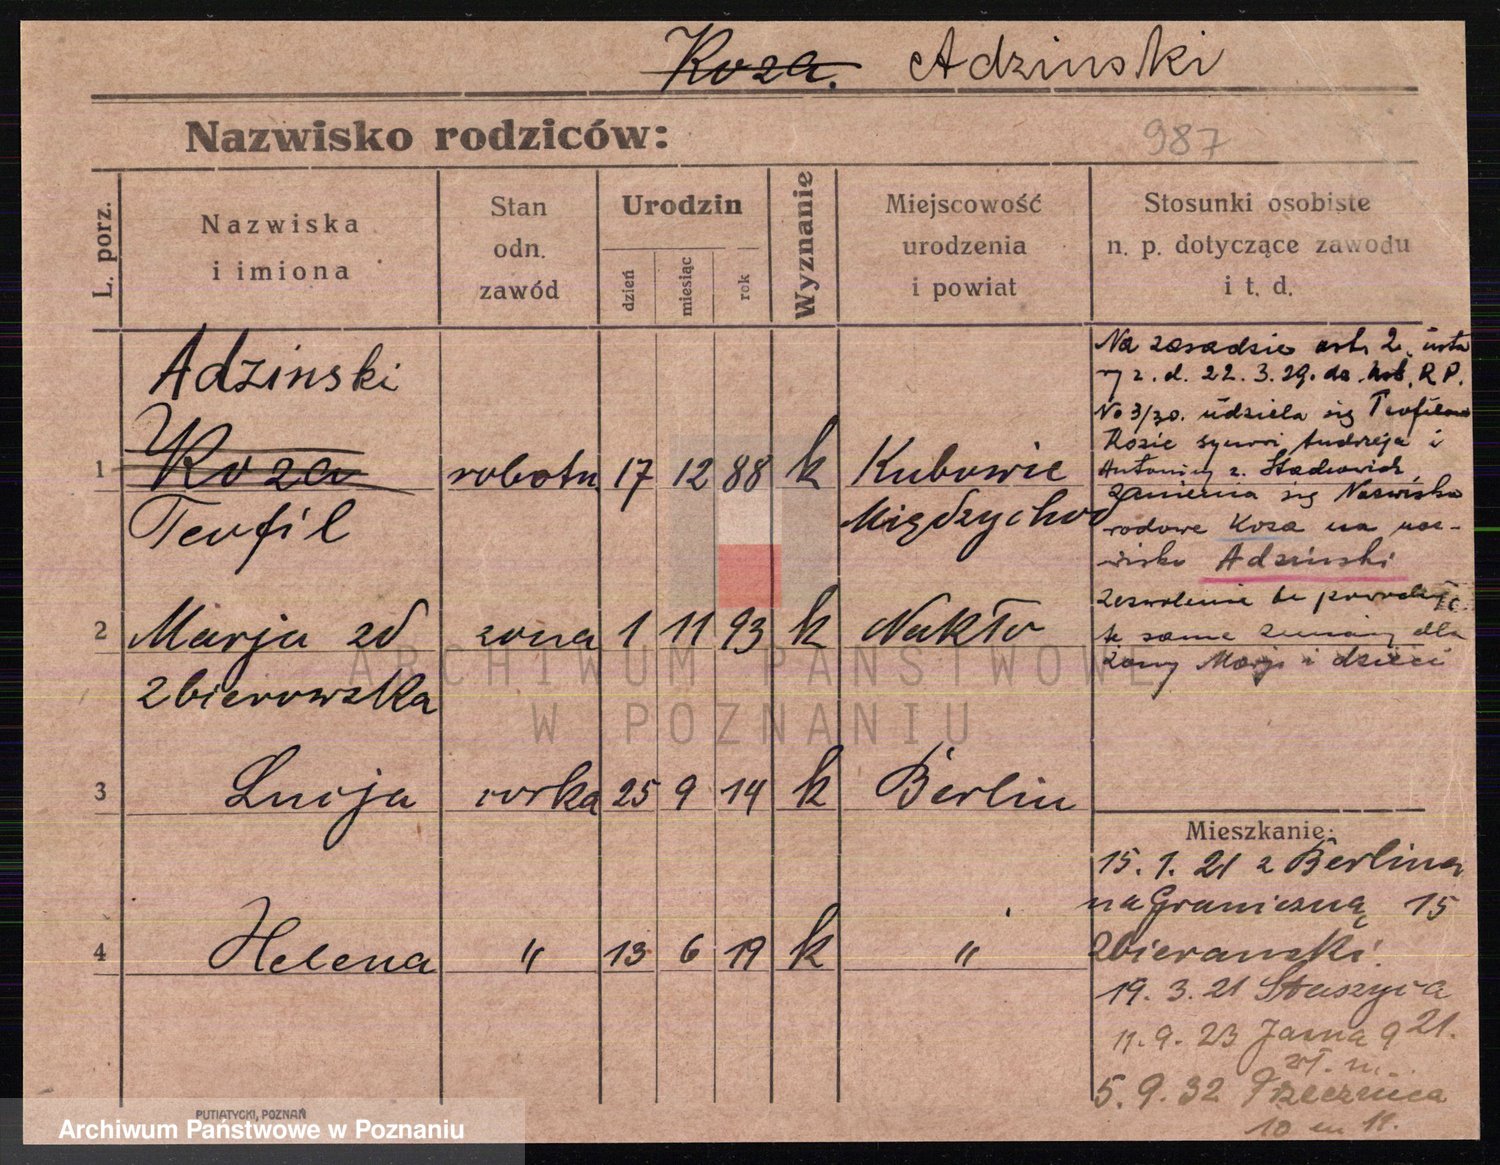 Koza. Adzinski
Nazwisko rodziców:
987
L. porz.
Nazwiska
i imiona
Stan
odn.
zawód
Urodzin
dzień
miesiąc
rok
Wyznanie
Miejscowość
urodzenia
i powiat
Stosunki osobiste
n. p. dotyczące zawodu
i t. d.
Adzinski
1 Koza robotn 17 12 88 k Kubowie
Teofil Międzychod
2 Marja zd żona 1 11 93 k Nakło
Zbierowska
3 Lucja córka 25 9 14 k Berlin
4 Helena " 13 6 19 k "
Na zasadzie art. 2. usta
wy z. d. 22. 3. 29. R P.
No 3/30. udziela się Teofilowi
Kozie synowi Andrzeja i
Antoniny z.
zamienia się Nazwisko
rodowe Koza na naz-
wisko Adzinski
Zezwolenie to powoduje
te same zmiany dla
żony Marji i dzieci
Mieszkanie:
15. 1. 21 z Berlina
na Graniczną 15
Zbieranski.
19. 3. 21 Staszyca
21.
11. 9. 23 Jasna 9
5. 9. 32 Rzeczna
10 m 11.
PUTIATYCKI, POZNAŃ
ARCHIWUM PAŃSTWOWE
W POZNANIU
Archiwum Państwowe w Poznaniu